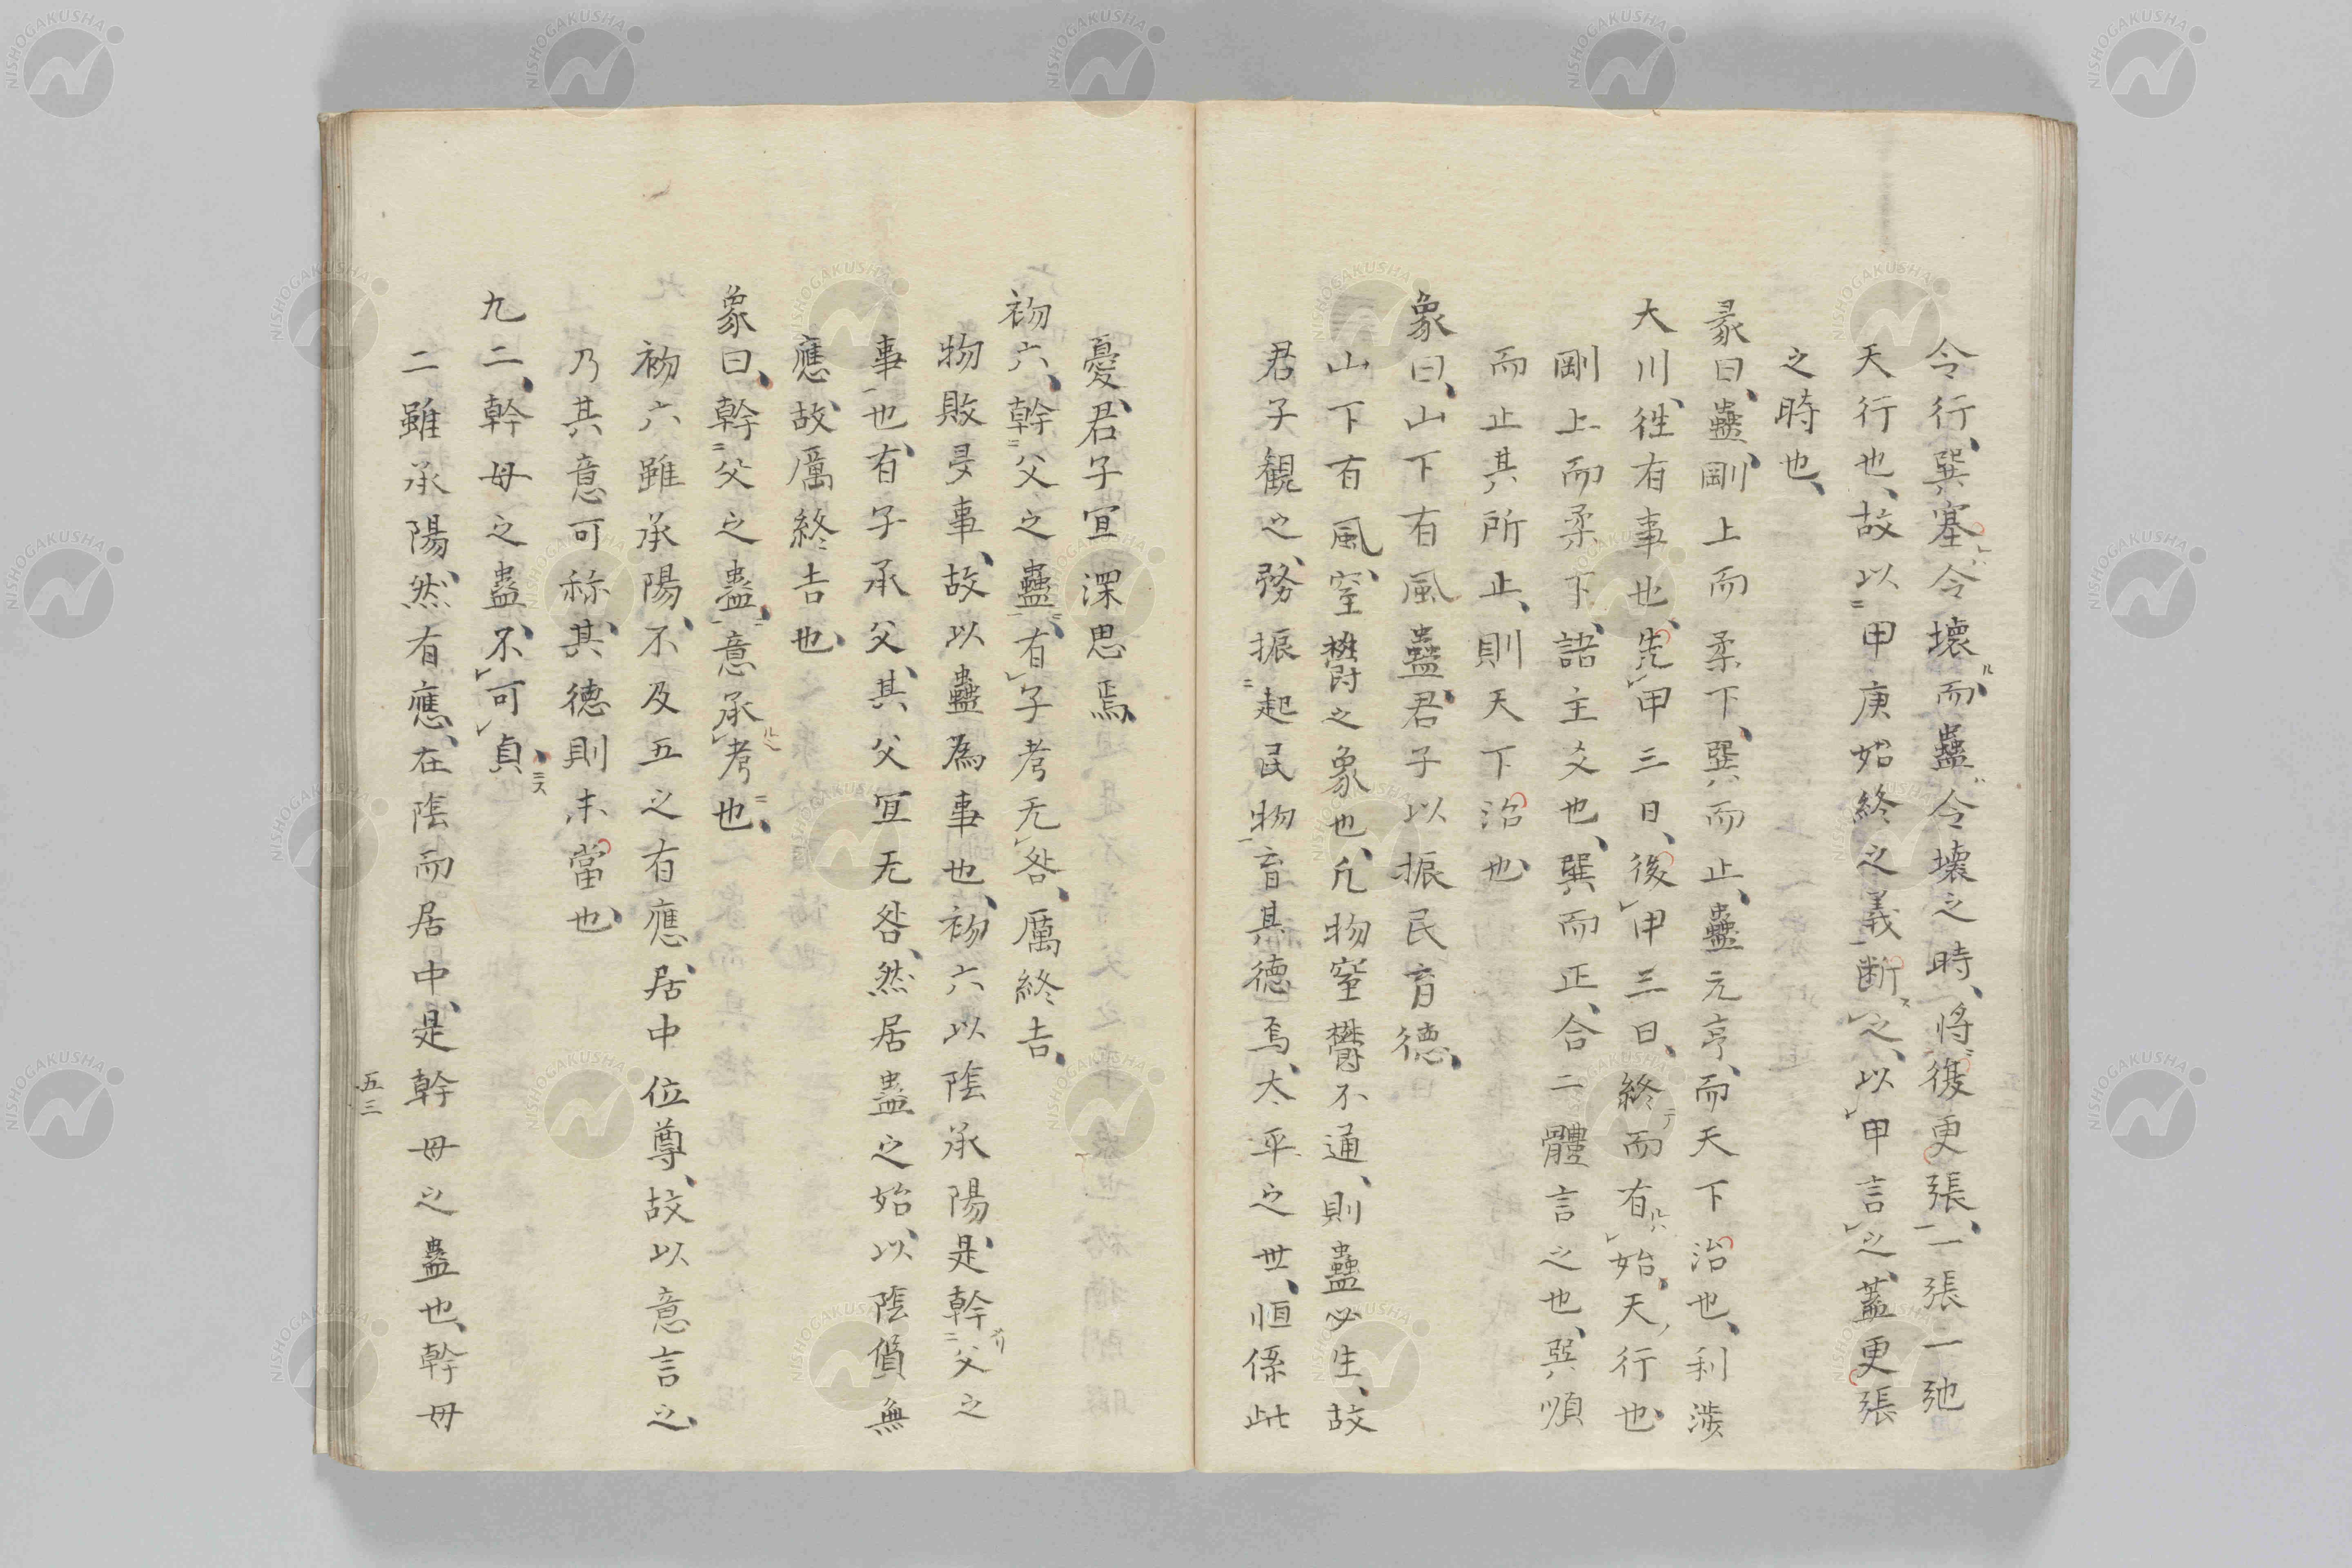 令行、巽塞令壞而蠱、令壞之時、將復更張、一張一弛
天行也、故以甲庚始終之義断之、以甲言之、蓋更張
之時也、
彖曰、蠱、剛上而柔下、巽而止、蠱元亨、而天下治也、利涉
大川、徃有事也、先甲三日、後甲三日、終而有始、天行也
剛上而柔下、語主爻也、巽而正、合二體言之也、巽順
而止其所止、則天下治也
象曰、山下有風蠱君子以振民育德、
山下有風、窒欝之象也、凡物窒欝不通、則蠱必生、故
君子観之、務振起民物育其德焉、太平之世、恒係此
憂、君子宜深思焉、
初六、幹父之蠱、有子考无咎、厲終吉、
物敗旻事、故以蠱為事也、初六以陰承陽、是幹父之
事也、有子承父、其父宜无咎、然居蠱之始、以陰質無
應、故厲終吉也、
象曰、幹父之蠱、意承考也、
初六雖承陽、不及五之有應、居中位尊、故以意言之、
乃其意可称、其德則未當也、
九二、幹母之蠱、不可貞、
二雖承陽、然有應、在陰而居中、是幹母之蠱也、幹母
五三
NISHOGAKUSHA